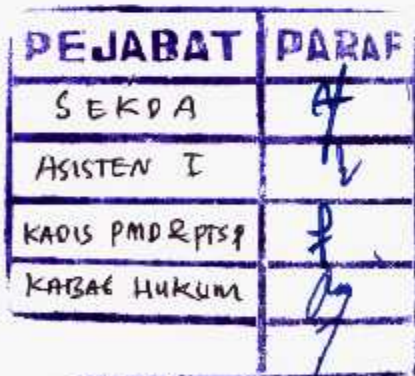 PEJABAT PARAF
SEKDA
ASISTEN I
KADIS PMD & PTSP
KABAG HUKUM